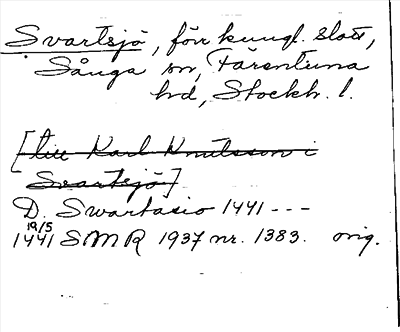 Svartsjö, förr kungl. slott,
Sånga sn, Färentuna
hd, Stockh. l.
[till Karl Knutsson i
Svartsjö]
D. Swartasio 1441 ---
19/5
1441 SMR 1937 nr. 1383. orig.